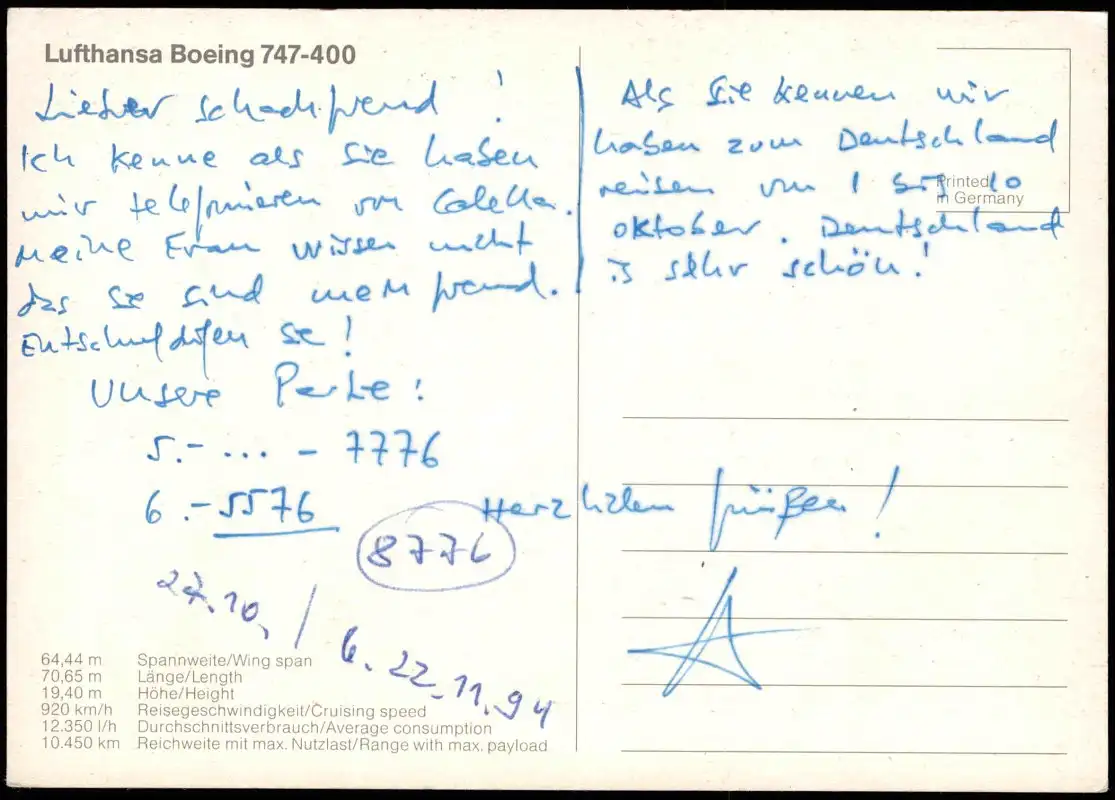 Lufthansa Boeing 747-400
Lieber schachfreund !
Ich kenne als Sie haben
mir telefonieren von Calella.
Meine Frau wissen nicht
das Sie sind mein freund.
Entschuldigen se !
Unsere Parte :
5.- ... - 7776
6 .- 5576
8776
27.10. / 6. 22.11.94
64,44 m Spannweite/Wing span
70,65 m Länge/Length
19,40 m Höhe/Height
920 km/h Reisegeschwindigkeit/Cruising speed
12.350 l/h Durchschnittsverbrauch/Average consumption
10.450 km Reichweite mit max. Nutzlast/Range with max. payload
Als Sie kennen wir
haben zum Deutschland
reisen von 1 bis 10
oktober. Deutschland
is sehr schön!
Printed
in Germany
Herzlichen grüßen !